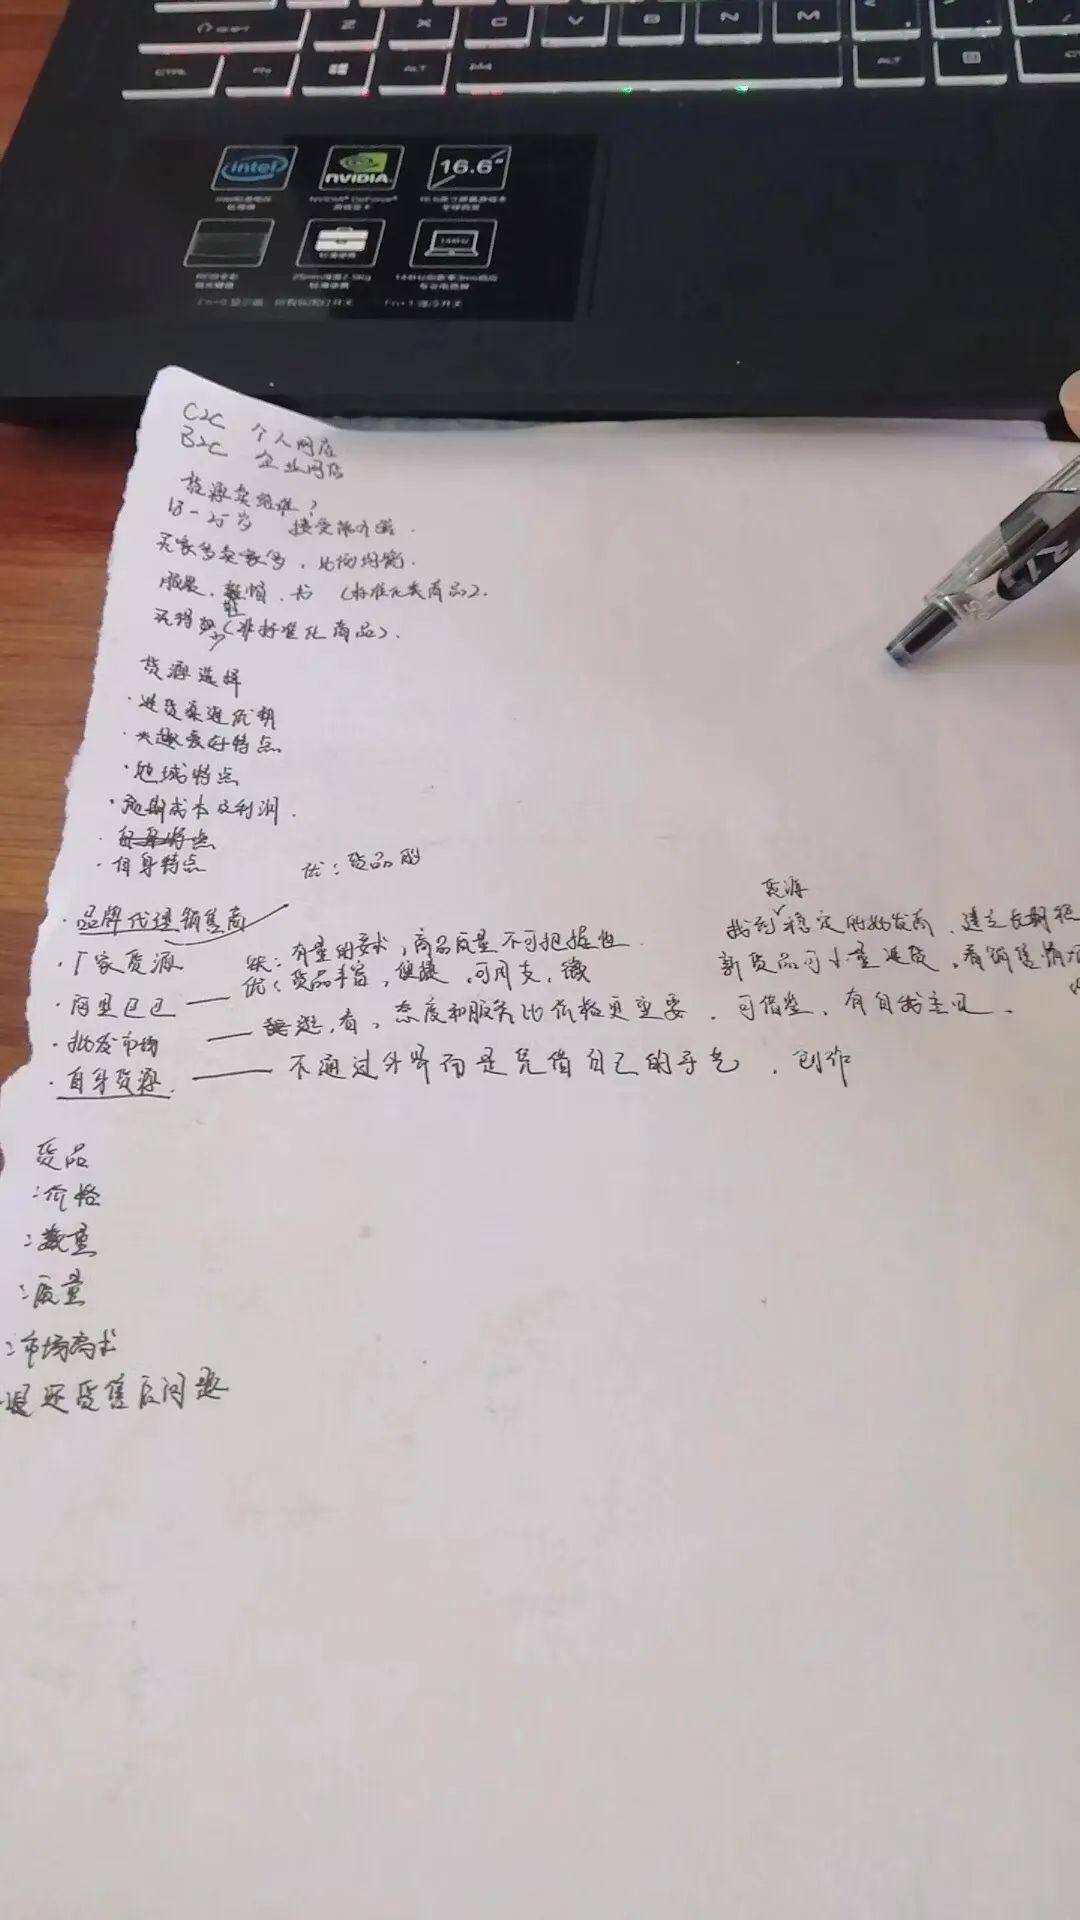 SHIFT Z X C V B N M
CTRL FN ALT ALT CTRL
intel NVIDIA 16.6"
NVIDIA® GeForce®
144Hz
C2C 个人网店
B2C 企业网店
货源卖给谁?
18-25岁 接受能力强.
买家多卖家多,比例均衡.
服装, 书 (标准化类商品).
(非标准化商品).
货源选择
·进货渠道优势
·兴趣爱好特点
·地域特点
·预期成本及利润.
·自身特点
·自身特点
优:货品
·品牌代理销售商
·厂家货源 缺:有量的要求,商品质量不可把握性.
优:货品丰富,便捷,可用支,微
·阿里巴巴
·批发市场 逛,看,态度和服务比价格更重要.可借鉴,有自我主见.
·自身货源. 不通过外界而是凭借自己的手艺,创作
货源
找到稳定的批发商,建立长期
新货品可小量进货,看销售情况
货品
:价格
:数量
:质量
:市场需求
·退还货售后问题